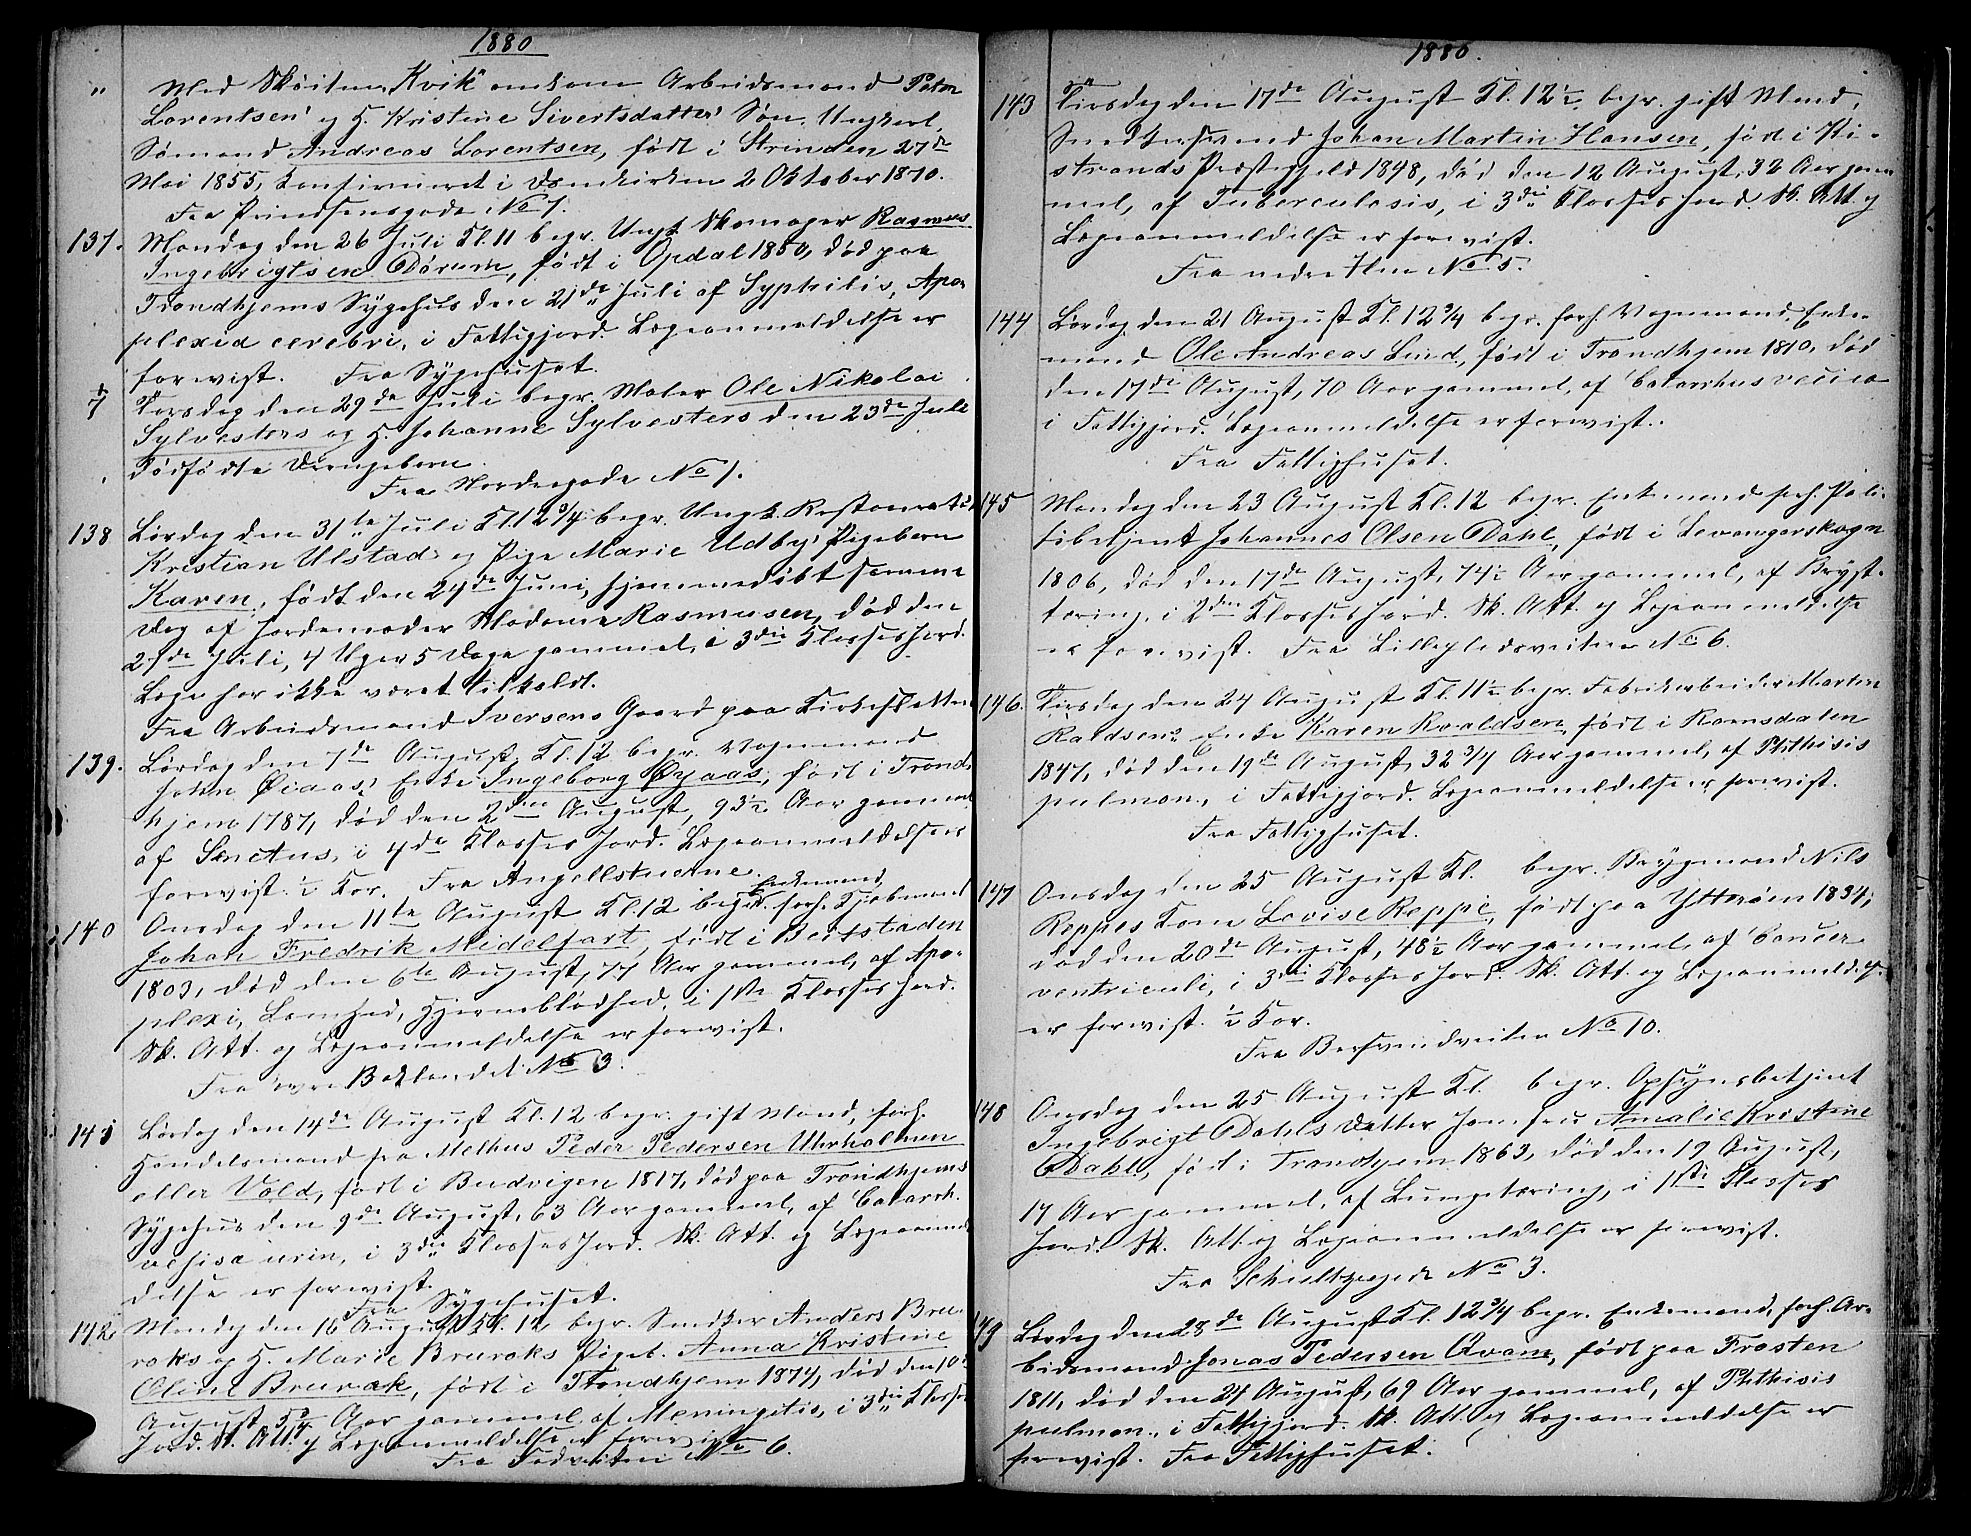 1880
" Med Skøiten "Kvik" omkom Arbeidsmand Peter
Lorentsens og H. Kristine Sivertsdatters Søn, Ungkarl,
Sømand Andreas Lorentsen, født i Strinden 27de
Mai 1855, konfirmeret i Domkirken 2 Oktober 1870.
Fra Prindsensgade No 7.
137. Mandag den 26 Juli Kl. 11 begr. Ungk. Skomager Rasmus
Ingebrigtsen Dørum, født i Opdal 1850, død paa
Trondhjems Sygehus den 21de Juli af Syphilis, Apo-
plexia cerebri, i Fattigjord. Lægeanmeldelse er
forevist. Fra Sygehuset.
+/7 Torsdag den 29de Juli begr. Maler Ole Nikolai
Sylvesters og H. Johanne Sylvesters den 23de Juli
dødfødte Drengebarn.
Fra Nordregade No 1.
138 Lørdag den 31te Juli Kl. 12 3/4 begr. Ungk. Restauratør
Kristian Ulstads og Pige Marie Udbys Pigebarn
Karen, født den 24de Juni, hjemmedøbt samme
Dag af Jordemoder Madame Rasmusen, død den
27de Juli, 4 Uger 5 Dage gammel, i 3die Klasses Jord.
Læge har ikke været tilkaldt.
Fra Arbeidsmand Iversens Gaard paa Kirkesletten
139. Lørdag den 7de August Kl. 12 begr. Vognmand
John Øiaas' Enke Ingeborg Øyaas, født i Trond-
hjem 1787, død den 2den August, 93 1/2 Aar gammel
af Senectus, i 4de Klasses Jord. Lægeanmeldelse er
forevist. 1/2 Kor. Fra Angellstuerne.
140 Onsdag den 11te August Kl. 12 begr. Enkemand, forh. Kjøbmand
Johan Fredrik Midelfart, født i Beitstaden
1803, død den 6te August, 77 Aar gammel, af Apo-
plexi, Lamhed, Hjerneblødhed, i 1ste Klasses Jord.
Sk. Att. og Lægeanmeldelse er forevist.
Fra øvre Baklandet No 3.
141 Lørdag den 14de August Kl. 12 begr. gift Mand, forh.
Handelsmand fra Melhus Peder Pedersen Uhrholmen
eller Vold, født i Budvigen 1817, død paa Trondhjems
Sygehus den 9de August, 63 Aar gammel, af Catarrh.
vesica urin, i 3die Klasses Jord. Sk. Att. og Lægeanmel-
delse er forevist.
Fra Sygehuset.
142 Mandag den 16 August Kl. 12 begr. Snedker Anders Bru-
raks og H. Marie Bruraks Pigeb. Anna Kristine
Olide Brurak, født i Trondhjem 1874, død den 10de
August, 5 3/4 Aar gammel af Meningitis, i 3die Klasses
Jord. Sk. Att. og Lægeanmeldelse er forevist.
Fra No 6.
1880.
143 Tirsdag den 17de August Kl. 12 1/2 begr. gift Mand,
Snedkersvend Johan Martin Hansen, født i Ki-
strands Præstegjeld 1848, død den 12 August, 32 Aar gam-
mel, af Tuberculosis, i 3die Klasses Jord. Sk. Att. og
Lægeanmeldelse er forevist.
Fra nedre Ilen No 5.
144 Lørdag den 21 August Kl. 12 3/4 begr. forh. Vognmand, Enke-
mand Ole Andreas Lind, født i Trondhjem 1810, død
den 17de August, 70 Aar gammel, af Catarrhus vesica
i Fattigjord. Lægeanmeldelse er forevist.
Fra Fattighuset.
145 Mandag den 23 August Kl. 12 begr. Enkemand forh. Poli-
tibetjent Johannes Olsen Dahl, født i Levangerskogn
1806, død den 17de August, 74 1/2 Aar gammel, af Bryst-
tæring, i 2den Klasses Jord. Sk. Att. og Lægeanmeldelse
er forevist. Fra Lillepladsveiten No 6.
146. Tirsdag den 24 August Kl. 11 1/2 begr. Fabrikarbeider Morten
Roaldsens Enke Karen Roaldsen, født i Romsdalen
1847, død den 19de August, 32 3/4 Aar gammel, af Phthisis
pulmon., i Fattigjord. Lægeanmeldelse er forevist.
Fra Fattighuset.
147 Onsdag den 25 August Kl. begr. Brygmand Nils
Reppes Kone Lovise Reppe, født paa Ytterøen 1834,
død den 20de August, 48 1/2 Aar gammel, af Cancer
ventriculi, i 3die Klasses Jord. Sk. Att. og Lægeanmeldelse
er forevist. 1/2 Kor.
Fra Bersvendveiten No 10.
148 Onsdag den 25 August Kl. begr. Opsynsbetjent
Ingebrigt Dahls Datter Jomfru Amalie Kristine
Dahl, født i Trondhjem 1863, død den 19 August,
17 Aar gammel, af Lungetæring, i 1ste Klasses
Jord. Sk. Att. og Lægeanmeldelse er forevist.
Fra Schultzgade No 3.
149 Lørdag den 28de August Kl. 12 3/4 begr. Enkemand, forh. Ar-
beidsmand Jonas Pedersen Qvam, født paa Frosten
1811, død den 24 August, 69 Aar gammel, af Phthisis
pulmon., i Fattigjord. Sk. Att. og Lægeanmeldelse er
forevist. Fra Fattighuset.